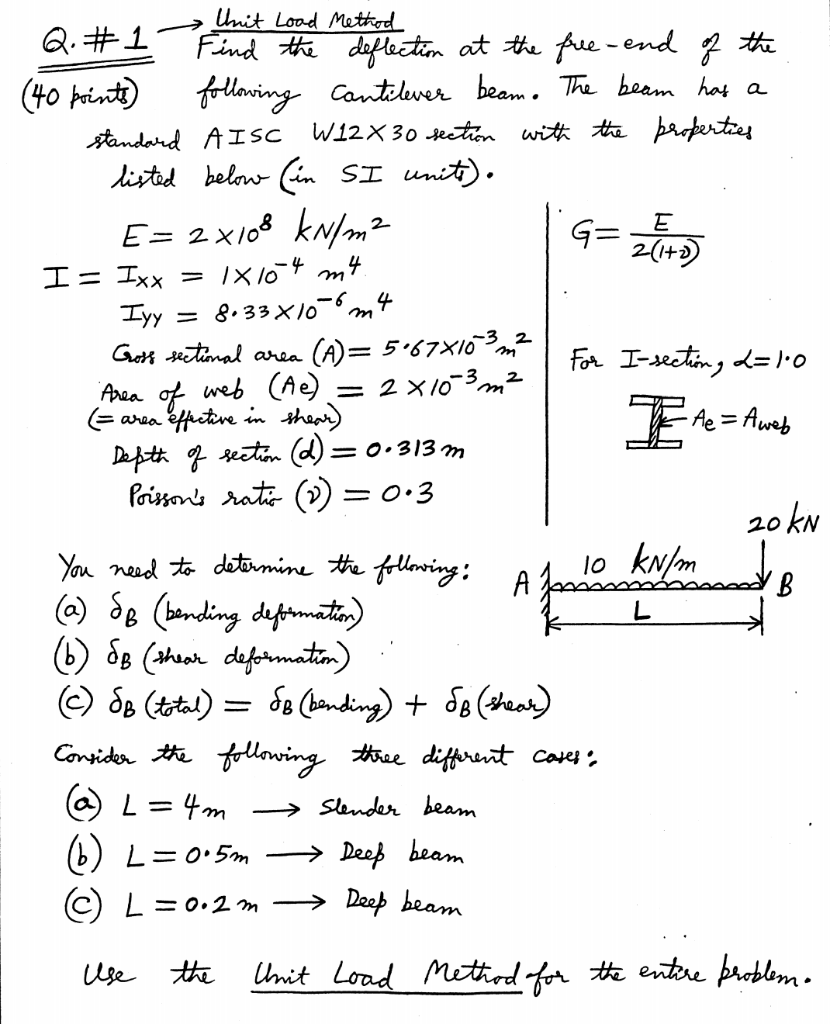 Q.#1 → Unit Load Method
Find the deflection at the free-end of the
(40 points) following cantilever beam. The beam has a
standard AISC W12X30 section with the properties
listed below (in SI units).
E = 2 × 10⁸ kN/m²
I = Ixx = 1×10⁻⁴ m⁴
Iyy = 8.33×10⁻⁶ m⁴
Cross sectional area (A) = 5.67×10⁻³ m²
Area of web (Ae) = 2 × 10⁻³ m²
(= area effective in shear)
Depth of section (d) = 0.313 m
Poisson's ratio (ν) = 0.3
G = E / 2(1+ν)
For I-section, α = 1.0
Ae = Aweb
You need to determine the following:
(a) δB (bending deformation)
(b) δB (shear deformation)
(c) δB (total) = δB (bending) + δB (shear)
20 kN
A 10 kN/m B
L
Consider the following three different cases:
(a) L = 4m → Slender beam
(b) L = 0.5m → Deep beam
(c) L = 0.2 m → Deep beam
Use the Unit Load Method for the entire problem.